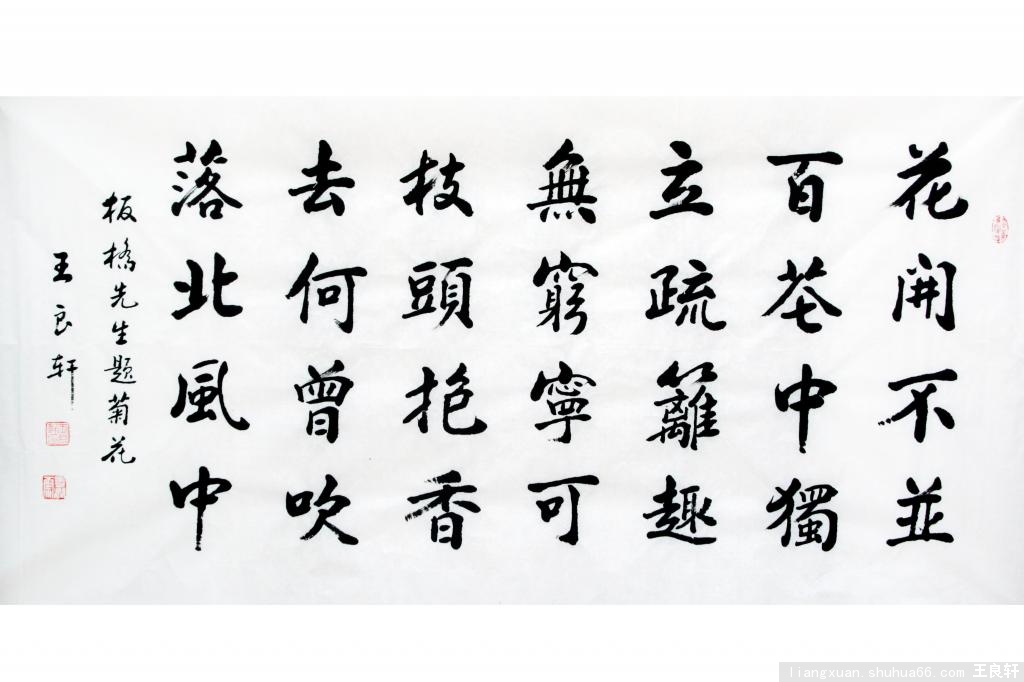 花開不並
百花中獨
立疏籬趣
無窮寧可
枝頭抱香
去何曾吹
落北風中
板橋先生題菊花
王良轩
liangxuan.shuhua66.com 王良轩